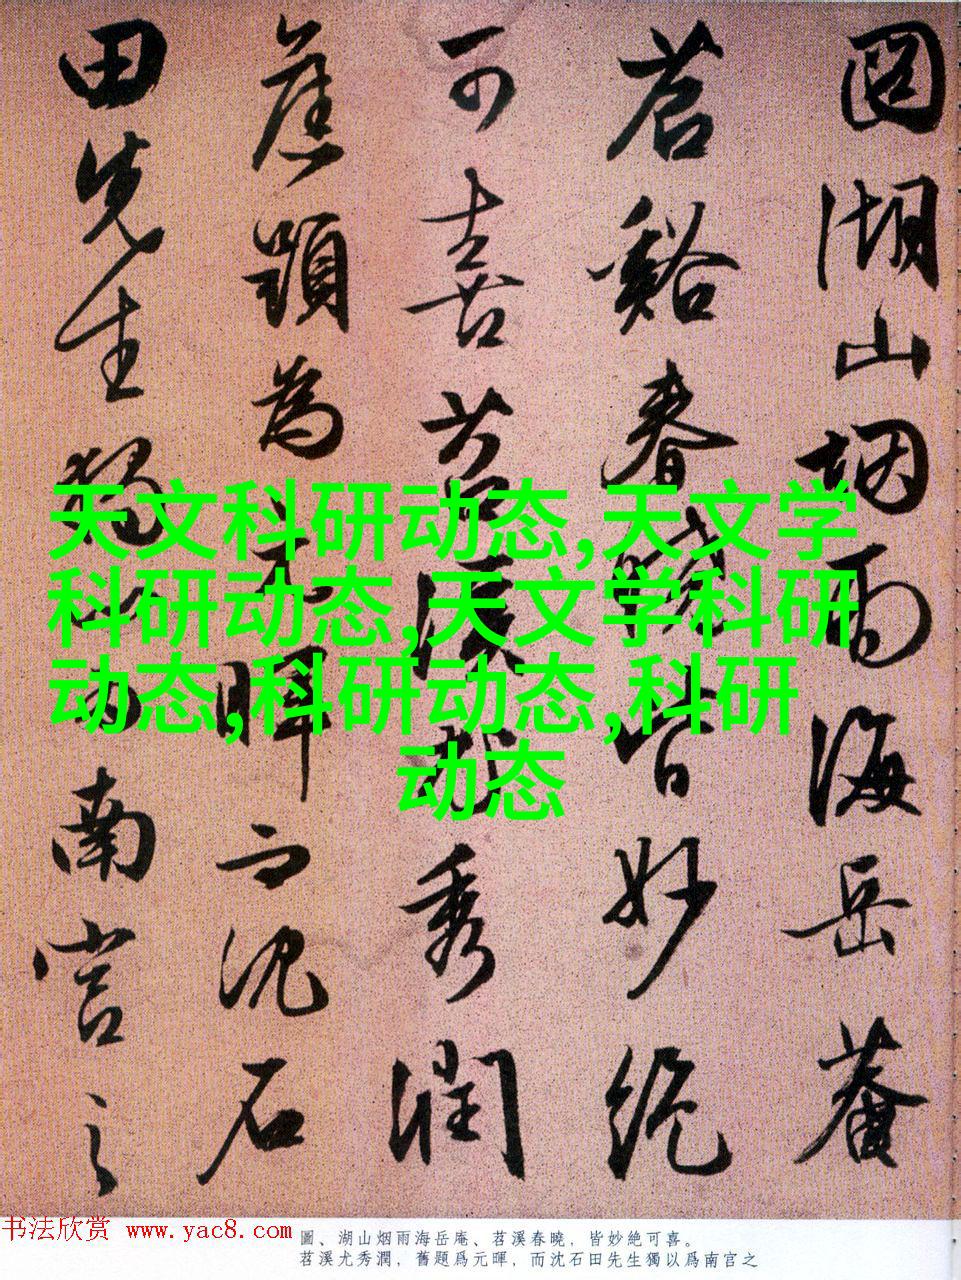 圖湖山烟雨海岳菴
苕谿春曉皆妙絶
可喜苕溪尤秀潤
舊題為元暉而沈石
田先生獨以為南宫之
天文科研动态,天文学
科研动态,天文学科研
动态,科研动态,科研
动态
书法欣赏 www.yac8.com
圖、湖山烟雨海岳庵、苕溪春曉，皆妙絶可喜。
苕溪尤秀潤，舊題爲元暉，而沈石田先生獨以爲南宫之